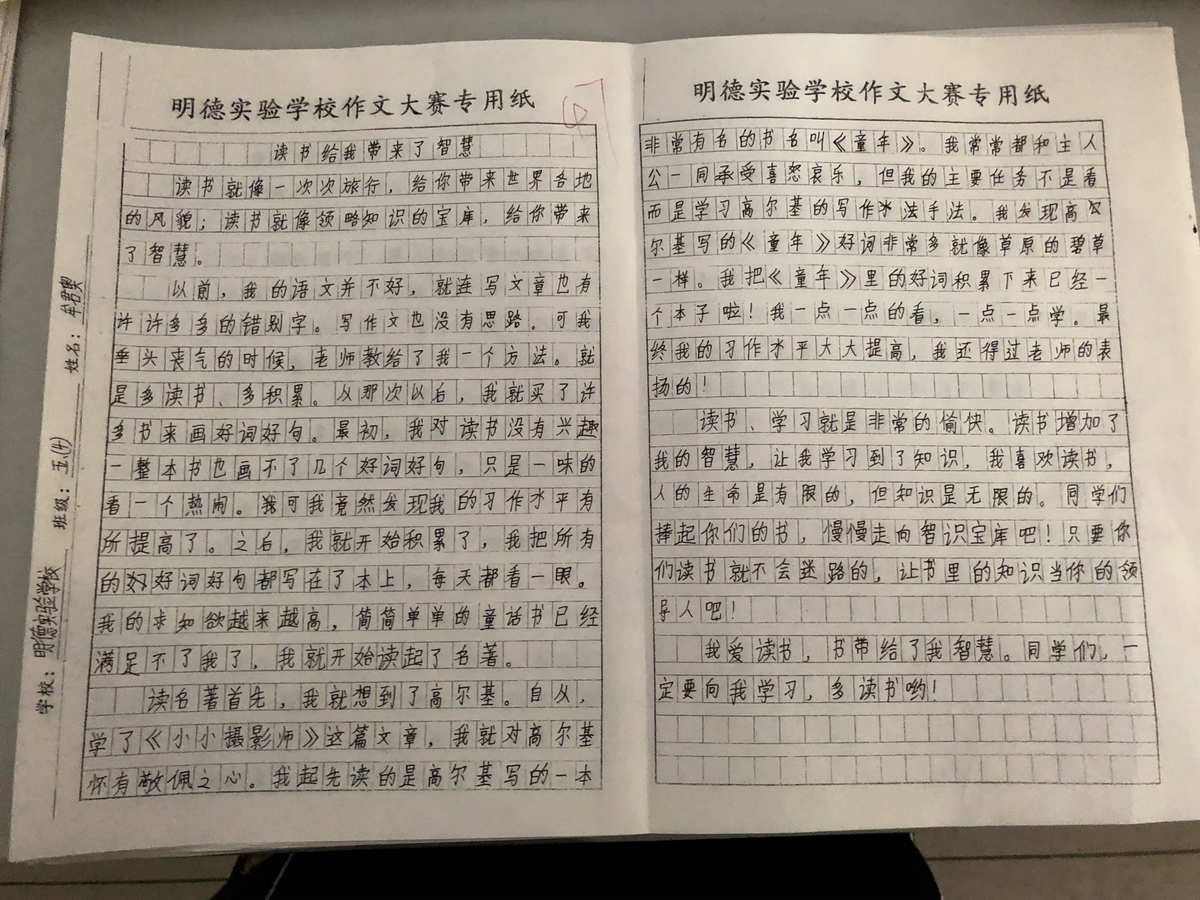 明德实验学校作文大赛专用纸
读书给我带来了智慧
读书就像一次次旅行，给你带来世界各地
的风貌；读书就像领略知识的宝库，给你带来
了智慧。
以前，我的语文并不好，就连写文章也有
许许多多的错别字。写作文也没有思路．可我
垂头丧气的时候，老师教给了我一个方法。就
是多读书、多积累。从那次以后，我就买了许
多书来画好词好句。最初，我对读书没有兴趣
一整本书也画不了几个好词好句，只是一味的
看一个热闹。我可我竟然发现我的习作水平有
所提高了。之后，我就开始积累了，我把所有
的好好词好句都写在了本上，每天都看一眼。
我的求知欲越来越高，简简单单的童话书已经
满足不了我了，我就开始读起了名著。
读名著首先，我就想到了高尔基。自从，
学了《小小摄影师》这篇文章，我就对高尔基
怀有敬佩之心。我起先读的是高尔基写的一本
学校：明德实验学校 班级：五(4) 姓名：牟君奥
47
明德实验学校作文大赛专用纸
非常有名的书名叫《童年》。我常常都和主人
公一同承受喜怒哀乐，但我的主要任务不是看
而是学习高尔基的写作水法手法。我发现高尔
尔基写的《童年》好词非常多就像草原的碧草
一样。我把《童年》里的好词积累下来已经一
个本子啦！我一点一点的看，一点一点学。最
终我的习作水平大大提高，我还得过老师的表
扬的！
读书、学习就是非常的愉快。读书增加了
我的智慧，让我学习到了知识，我喜欢读书，
人的生命是有限的，但知识是无限的。同学们
捧起你们的书，慢慢走向智识宝库吧！只要你
们读书就不会迷路的，让书里的知识当你的领
导人吧！
我爱读书，书带给了我智慧。同学们，一
定要向我学习，多读书哟！